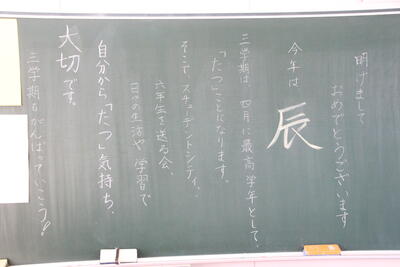 明けまして
おめでとうございます
今年は
辰
三学期は、四月に最高学年として、
「たつ」ことになります。
そこで、スチューデントシティ、
六年生を送る会、
日々の生活や、学習で
自分から「たつ」気持ち、
大切です。
三学期もがんばっていこう!